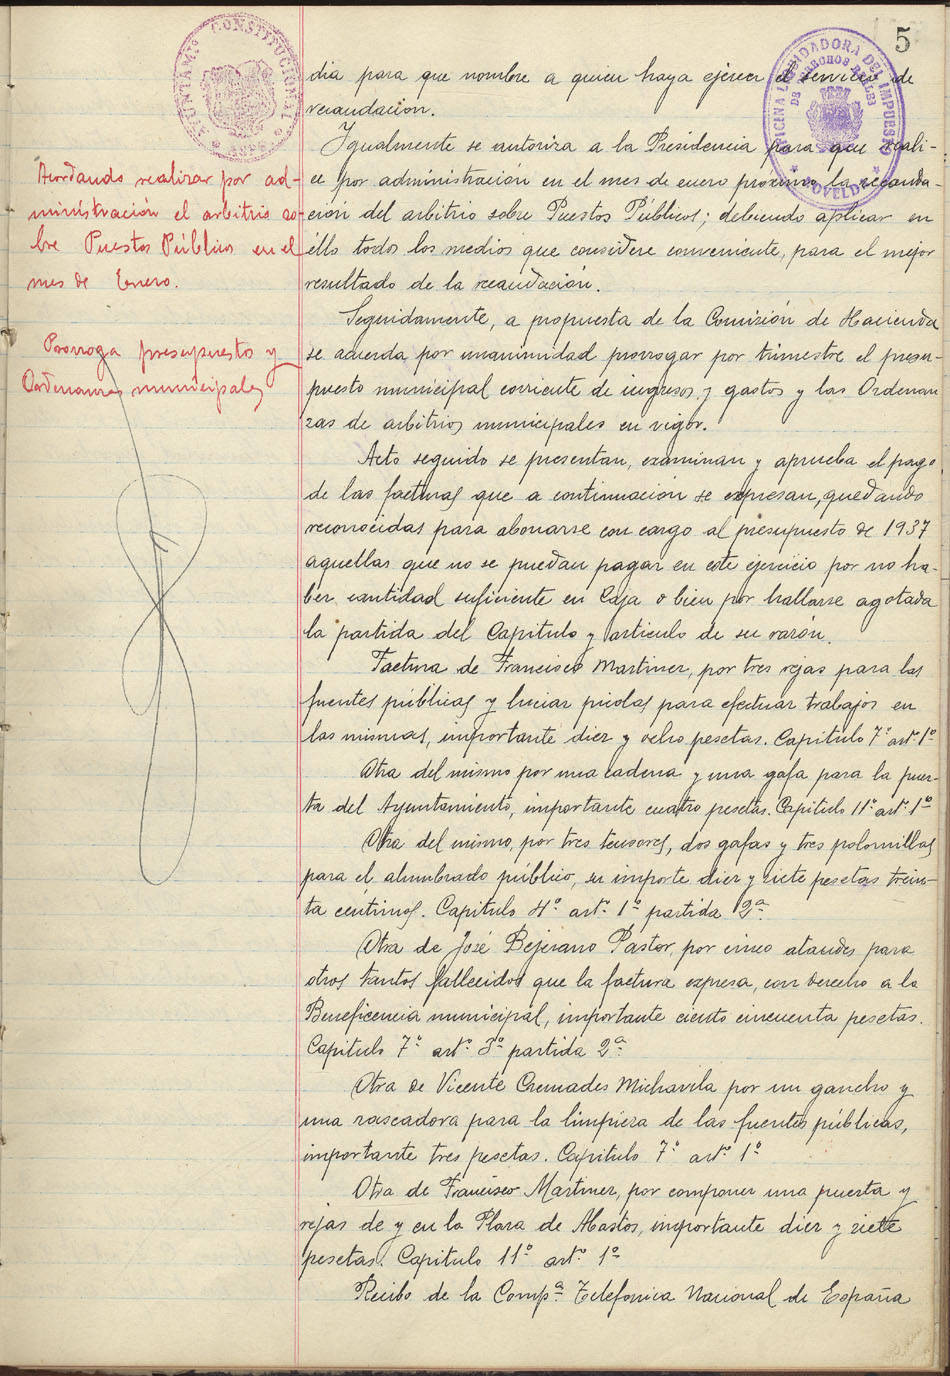 5
AYUNTAMTº CONSTITUCIONAL
ASPE
OFICINA LIQUIDADORA DEL IMPUESTO
DE DERECHOS REALES
NOVELDA
dia para que nombre a quien haya ejercer el servicio de
recaudación.
Igualmente se autoriza a la Presidencia para que reali-
ce por administración en el mes de enero próximo la recauda-
ción del arbitrio sobre Puestos Públicos; debiendo aplicar en
éllo todos los medios que considere conveniente, para el mejor
resultado de la recaudación.
Seguidamente, a propuesta de la Comisión de Hacienda
se acuerda por unanimidad prorrogar por trimestre el presu-
puesto municipal corriente de ingresos y gastos y las Ordenan
zas de arbitrios municipales en vigor.
Acto seguido se presentan, examinan y aprueba el pago
de las facturas que a continuación se expresan, quedando
reconocidas para abonarse con cargo al presupuesto de 1937
aquellas que no se puedan pagar en este ejercicio por no ha-
ber cantidad suficiente en Caja o bien por hallarse agotada
la partida del Capitulo y articulo de su razón.
Factura de Francisco Martinez, por tres rejas para las
fuentes públicas y luciar picolas para efectuar trabajos en
las mismas, importante diez y ocho pesetas. Capitulo 7º artº 1º
Otra del mismo por una cadena y una gafa para la puer-
ta del Ayuntamiento, importante cuatro pesetas. Capitulo 11º artº 1º
Otra del mismo, por tres tensores, dos gafas y tres polomillas
para el alumbrado público, su importe diez y siete pesetas trein-
ta céntimos. Capitulo 4º artº 1º partida 2ª
Otra de José Bejerano Pastor, por cinco ataudes para
otros tantos fallecidos que la factura expresa, con derecho a la
Beneficencia municipal, importante ciento cincuenta pesetas.
Capitulo 7º artº 3º partida 2ª
Otra de Vicente Cremades Michavila por un gancho y
una rascadora para la limpieza de las fuentes públicas,
importante tres pesetas. Capitulo 7º artº 1º
Otra de Francisco Martinez, por componer una puerta y
rejas de y en la Plaza de Abastos, importante diez y siete
pesetas. Capitulo 11º artº 1º
Recibo de la Compª Telefonica Nacional de España
Acordando realizar por ad-
ministración el arbitrio so-
bre Puestos Públicos en el
mes de Enero.
Prorroga presupuesto y
Ordenanzas municipales